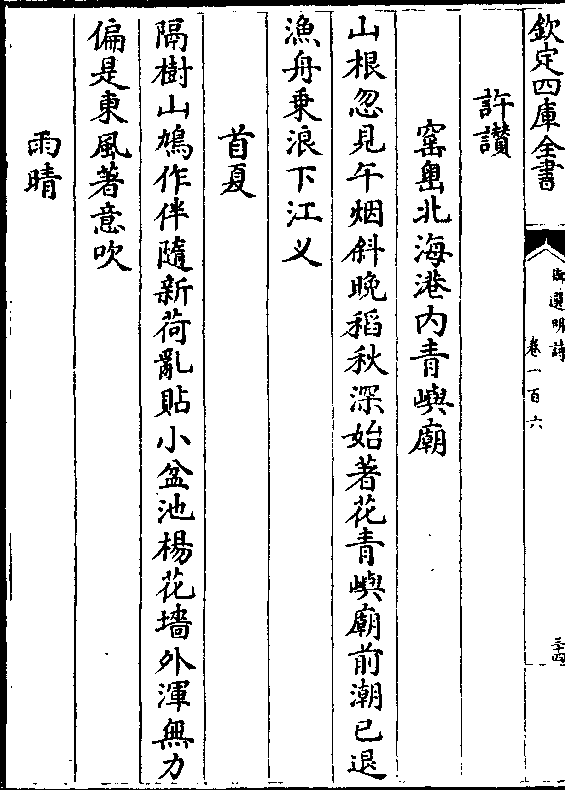 欽定四庫全書
御選明詩
卷一百六
三十四
許讃
窑㟁北海港内青嶼廟
山根忽見午烟斜晩稻秋深始著花青嶼廟前潮已退
漁舟乗浪下江乂
首夏
隔樹山鳩作伴隨新荷亂貼小盆池楊花墻外渾無力
偏是東風著意吹
雨晴